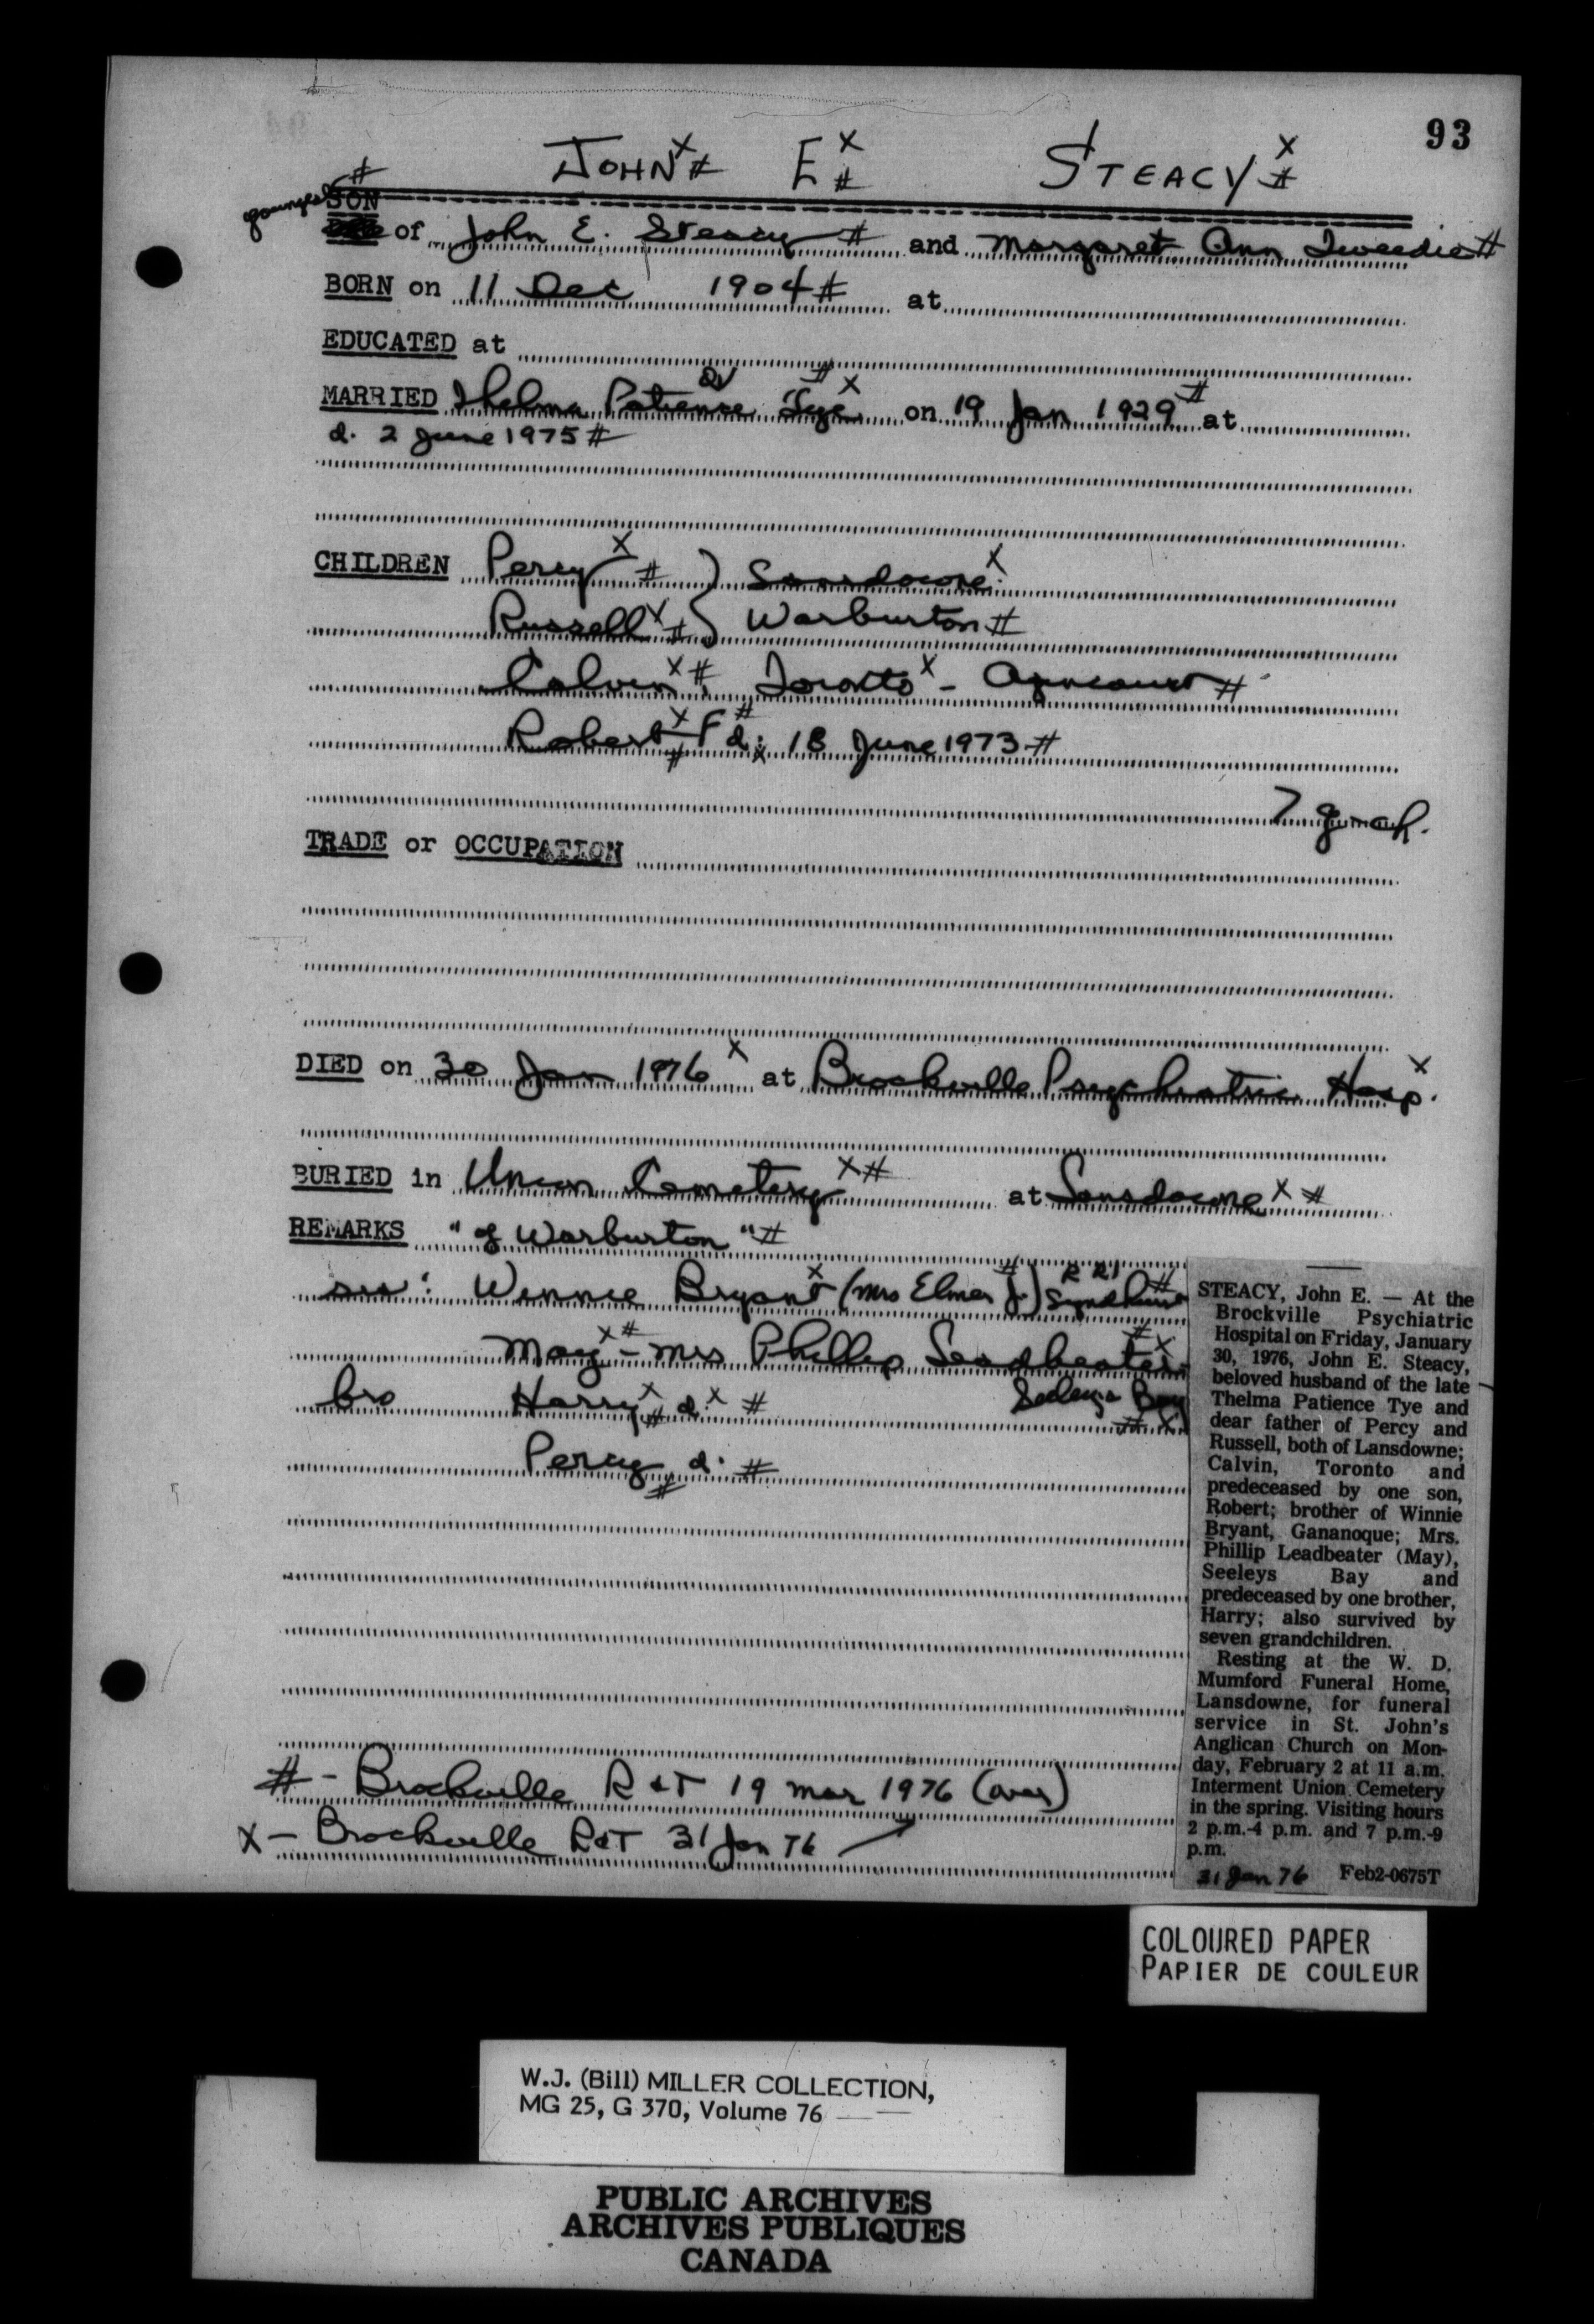 93
JOHN x # E x # STEACY x #
youngest # SON of John E. Steacy # and Margaret Ann Tweedie #
BORN on 11 Dec 1904 # at
EDUCATED at
MARRIED Thelma Patience Tye # x on 19 Jan 1929 # at
d. 2 June 1975 #
CHILDREN Percy x # } Lansdowne x
Russell x # } Warburton #
Calvin x #, Toronto x - Agincourt #
Robert x # F # d. x 18 June 1973 #
7 g-ch.
TRADE or OCCUPATION
DIED on 30 Jan 1976 x at Brockville Psychiatric Hosp. x
BURIED in Union Cemetery x # at Lansdowne x #
REMARKS "of Warburton" #
sis: Winnie Bryant x (Mrs Elmer J.) # R R 1 Lyndhurst #
May x # - Mrs Phillip Leadbeater # x
Seeleys Bay # x
bro Harry x # d. x #
Percy # d. #
# - Brockville R & T 19 Mar 1976 (over)
x - Brockville R&T 31 Jan 76
STEACY, John E. — At the
Brockville Psychiatric
Hospital on Friday, January
30, 1976, John E. Steacy,
beloved husband of the late
Thelma Patience Tye and
dear father of Percy and
Russell, both of Lansdowne;
Calvin, Toronto and
predeceased by one son,
Robert; brother of Winnie
Bryant, Gananoque; Mrs.
Phillip Leadbeater (May),
Seeleys Bay and
predeceased by one brother,
Harry; also survived by
seven grandchildren.
Resting at the W. D.
Mumford Funeral Home,
Lansdowne, for funeral
service in St. John's
Anglican Church on Mon-
day, February 2 at 11 a.m.
Interment Union Cemetery
in the spring. Visiting hours
2 p.m.-4 p.m. and 7 p.m.-9
p.m.
31 Jan 76 Feb2-0675T
COLOURED PAPER
PAPIER DE COULEUR
W.J. (Bill) MILLER COLLECTION,
MG 25, G 370, Volume 76
PUBLIC ARCHIVES
ARCHIVES PUBLIQUES
CANADA